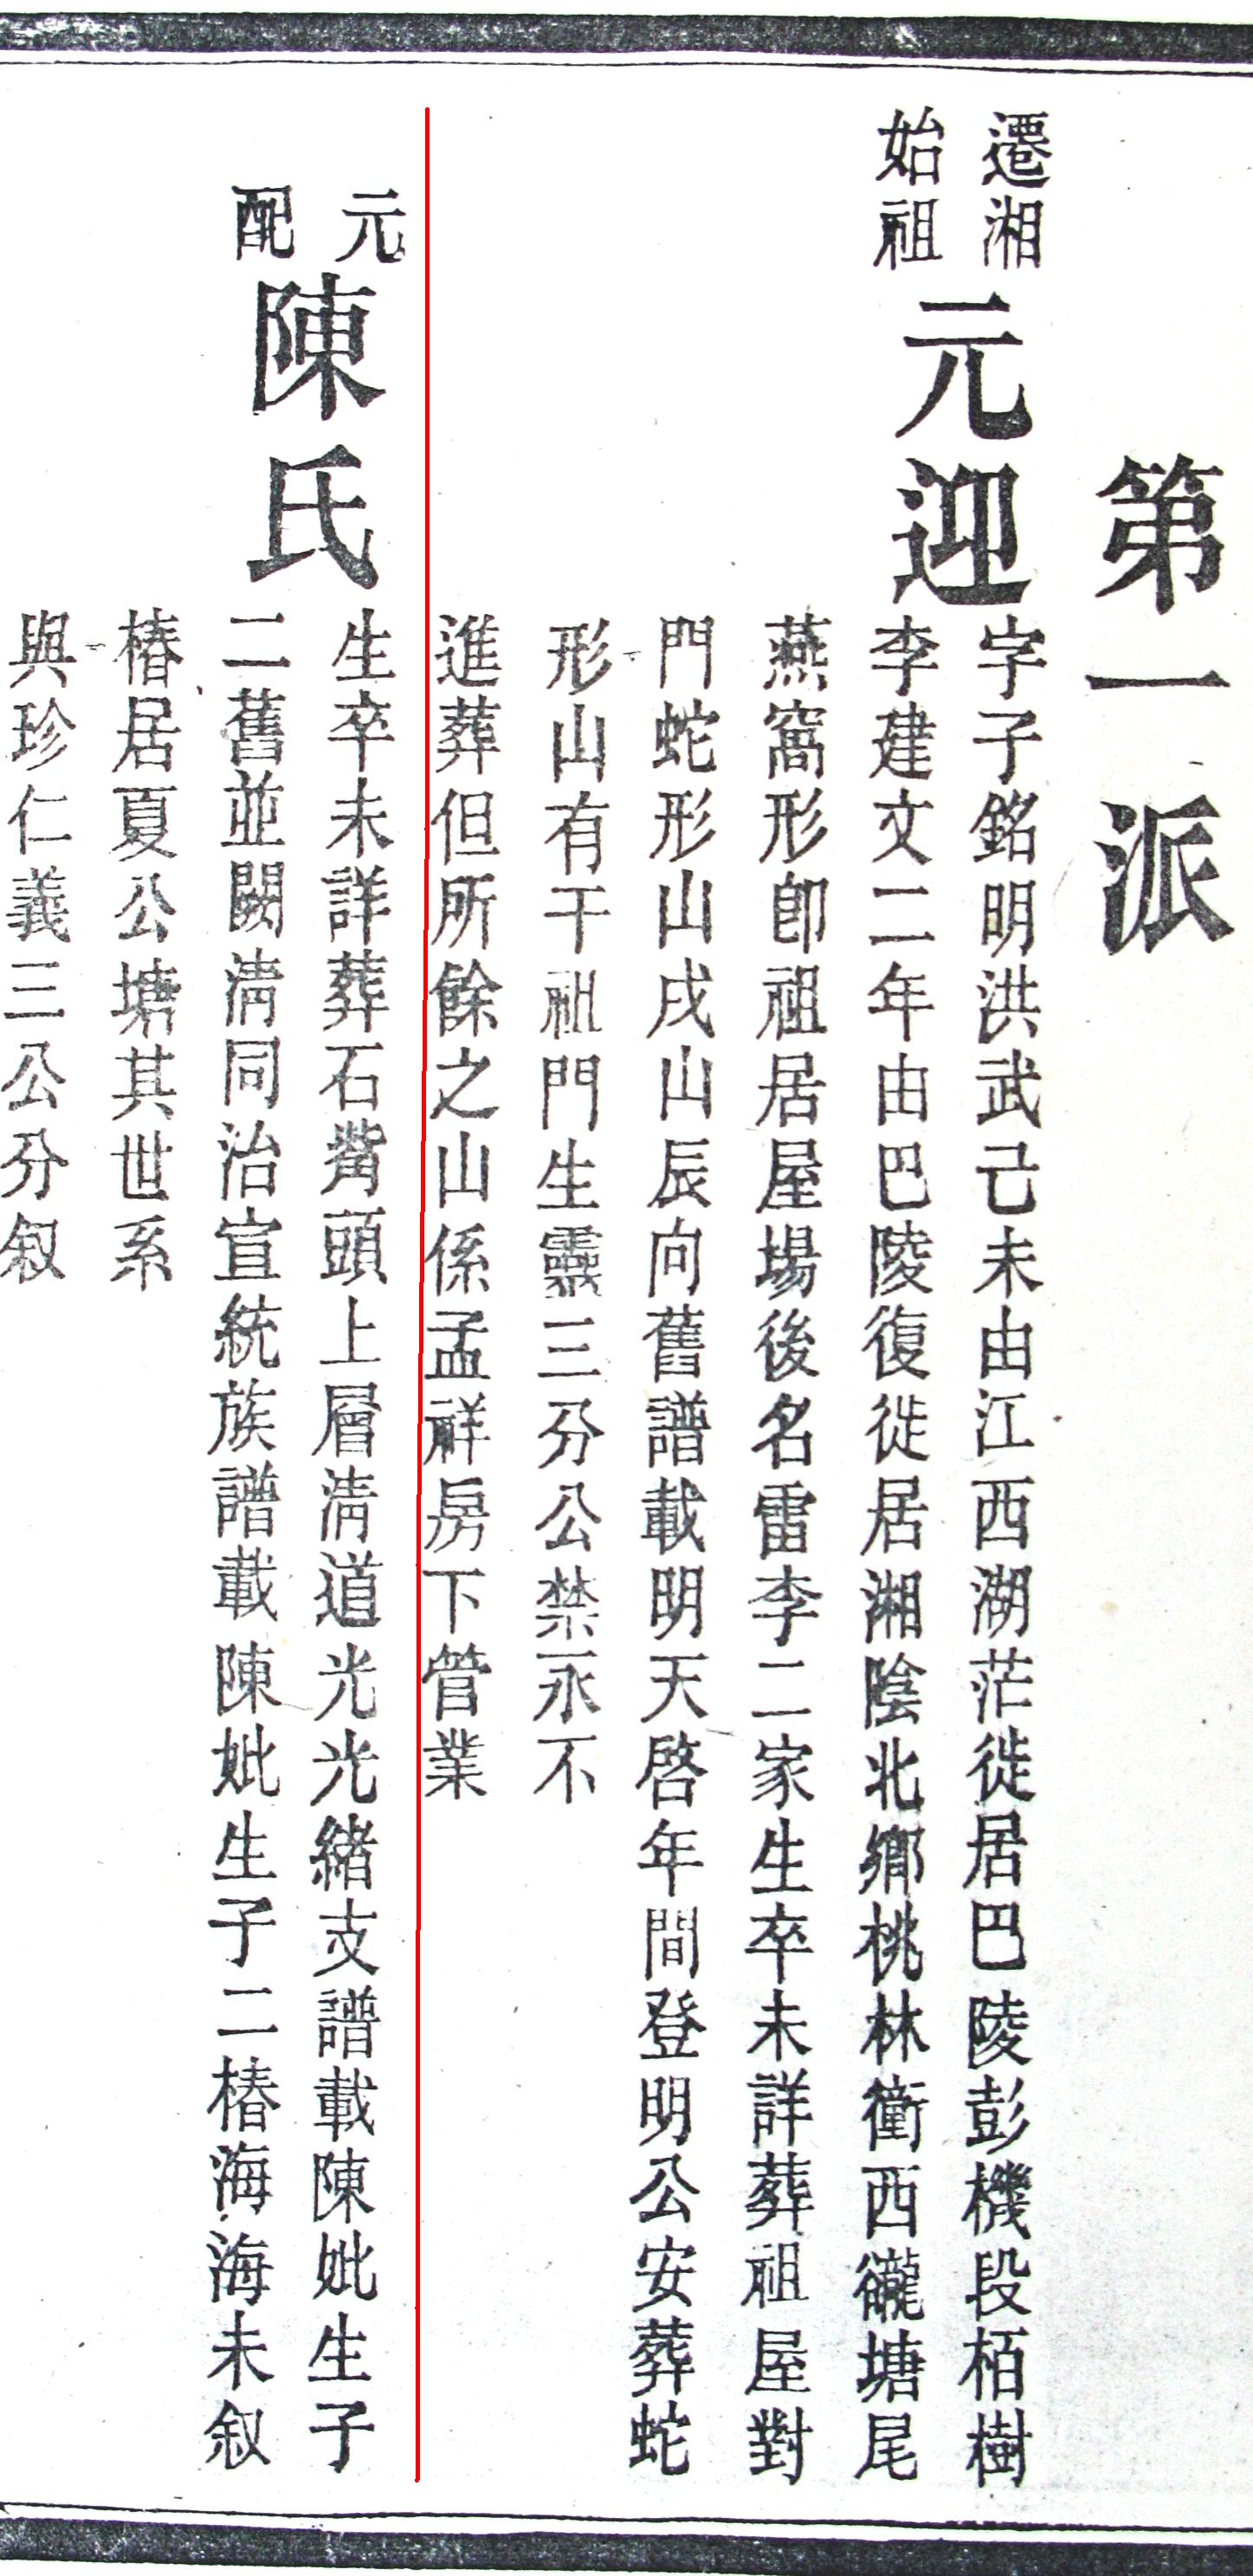 第一派
遷湘
始祖
元迎
字子銘明洪武己未由江西湖茫徙居巴陵彭機段栢樹
李建文二年由巴陵復徙居湘陰北鄉桃林衝西塘尾
燕窩形卽祖居屋場後名雷李二家生卒未詳葬祖屋對
門蛇形山戌山辰向舊譜載明天啓年間登明公安葬蛇
形山有干祖門生靈三分公禁永不
進葬但所餘之山係孟祥房下管業
元
配
陳氏
生卒未詳葬石觜頭上層淸道光光緒支譜載陳妣生子
二舊並闕淸同治宣統族譜載陳妣生子二椿海海未叙
椿居夏公塘其世系
與珍仁義三公分叙